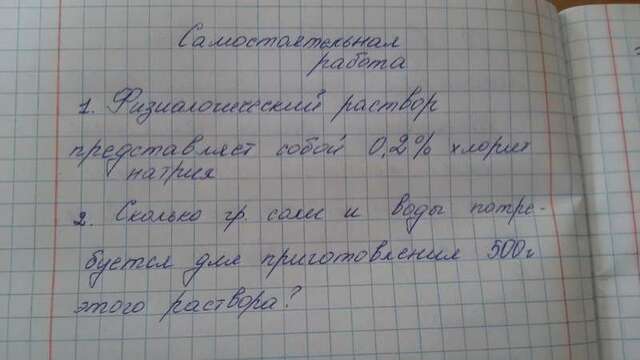 Самостоятельная
работа
1. Физиалогический раствор
представляет собой 0,2% хлорит
натрия
2. Сколько гр. соли и воды потре-
буется для приготовления 500г
этого раствора?